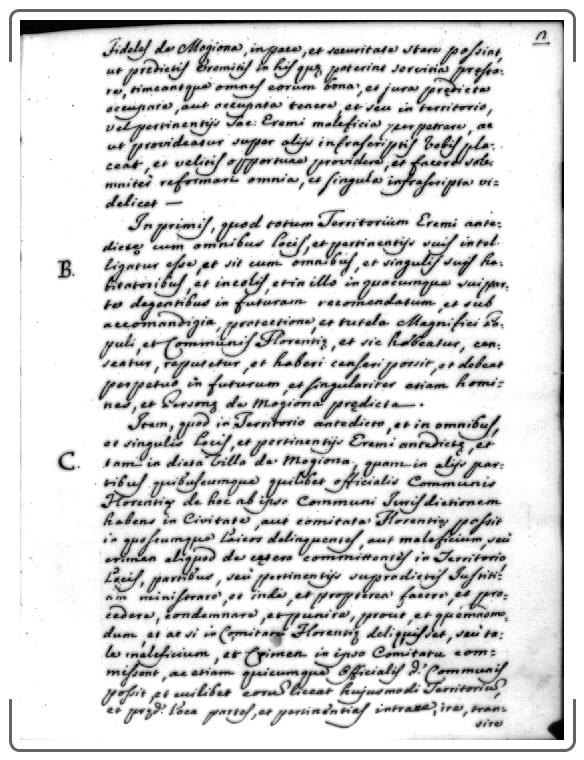 n
Fideles de Mogiona, in pace, et securitate stare possint,
ut predictis Eremitis in his quę poterint servitia presta-
re, timeantque omnes eorum bona, et jura prędicta
occupare, aut occupata tenere, et seu in territorio,
vel pertinentijs Sac: Eremi maleficia perpetrare, ac
ut provideatur super alijs infrascriptis Vobis pla-
ceat, et velitis opportune providere, et facere sole-
mniter reformari omnia, et singula infrascripta vi-
delicet —
In primis, quod totum Territorium Eremi ante-
dictę cum omnibus locis, et pertinentijs suis intel-
B. ligatur esse, et sit cum omnibus, et singulis suis ha-
bitatoribus, et incolis, et in illo in quacumque sui par-
te degentibus in futuram recomendatum, et sub
accomandigia, protectione, et tutela Magnifici Po-
puli, et Communis Florentię, et sic habeatur, cen-
seatur, reputetur, et haberi censeri possit, et debeat
perpetuo in futurum, et singulariter etiam homi-
nes, et Personę de Mogiona prędicta.
Item, quod in Territorio antedicto, et in omnibus,
et singulis locis, et pertinentijs Eremi antedictę, et
C. tam in dicta Villa de Mogiona, quam in alijs par-
tibus quibuscumque quilibet officialis Communis
Florentię de hoc ab ipso Communi Jurisdictionem
habens in Civitate, aut comitatu Florentię possit
in quoscumque Laicos delinquentes, aut maleficium, seu
crimen aliquod de cętero committentes in Territorio
Locis, partibus, seu pertinentijs suprodictis Justiti-
am ministrare, et inde, et propterea facere, et pro-
cedere, condemnare, et punire, prout, et quemadmo-
dum, et ac si in Comitatu Florentię deliquisset, seu ta-
le maleficium, et Crimen in ipso Comitatu com-
missent, ac etiam quicumque Officialis d.' Communis
possit, et cuilibet eorũ liceat hujusmodi Territoriũ,
et pręd. Loca partes, et pertinentias intrare, ire, tran-
sire